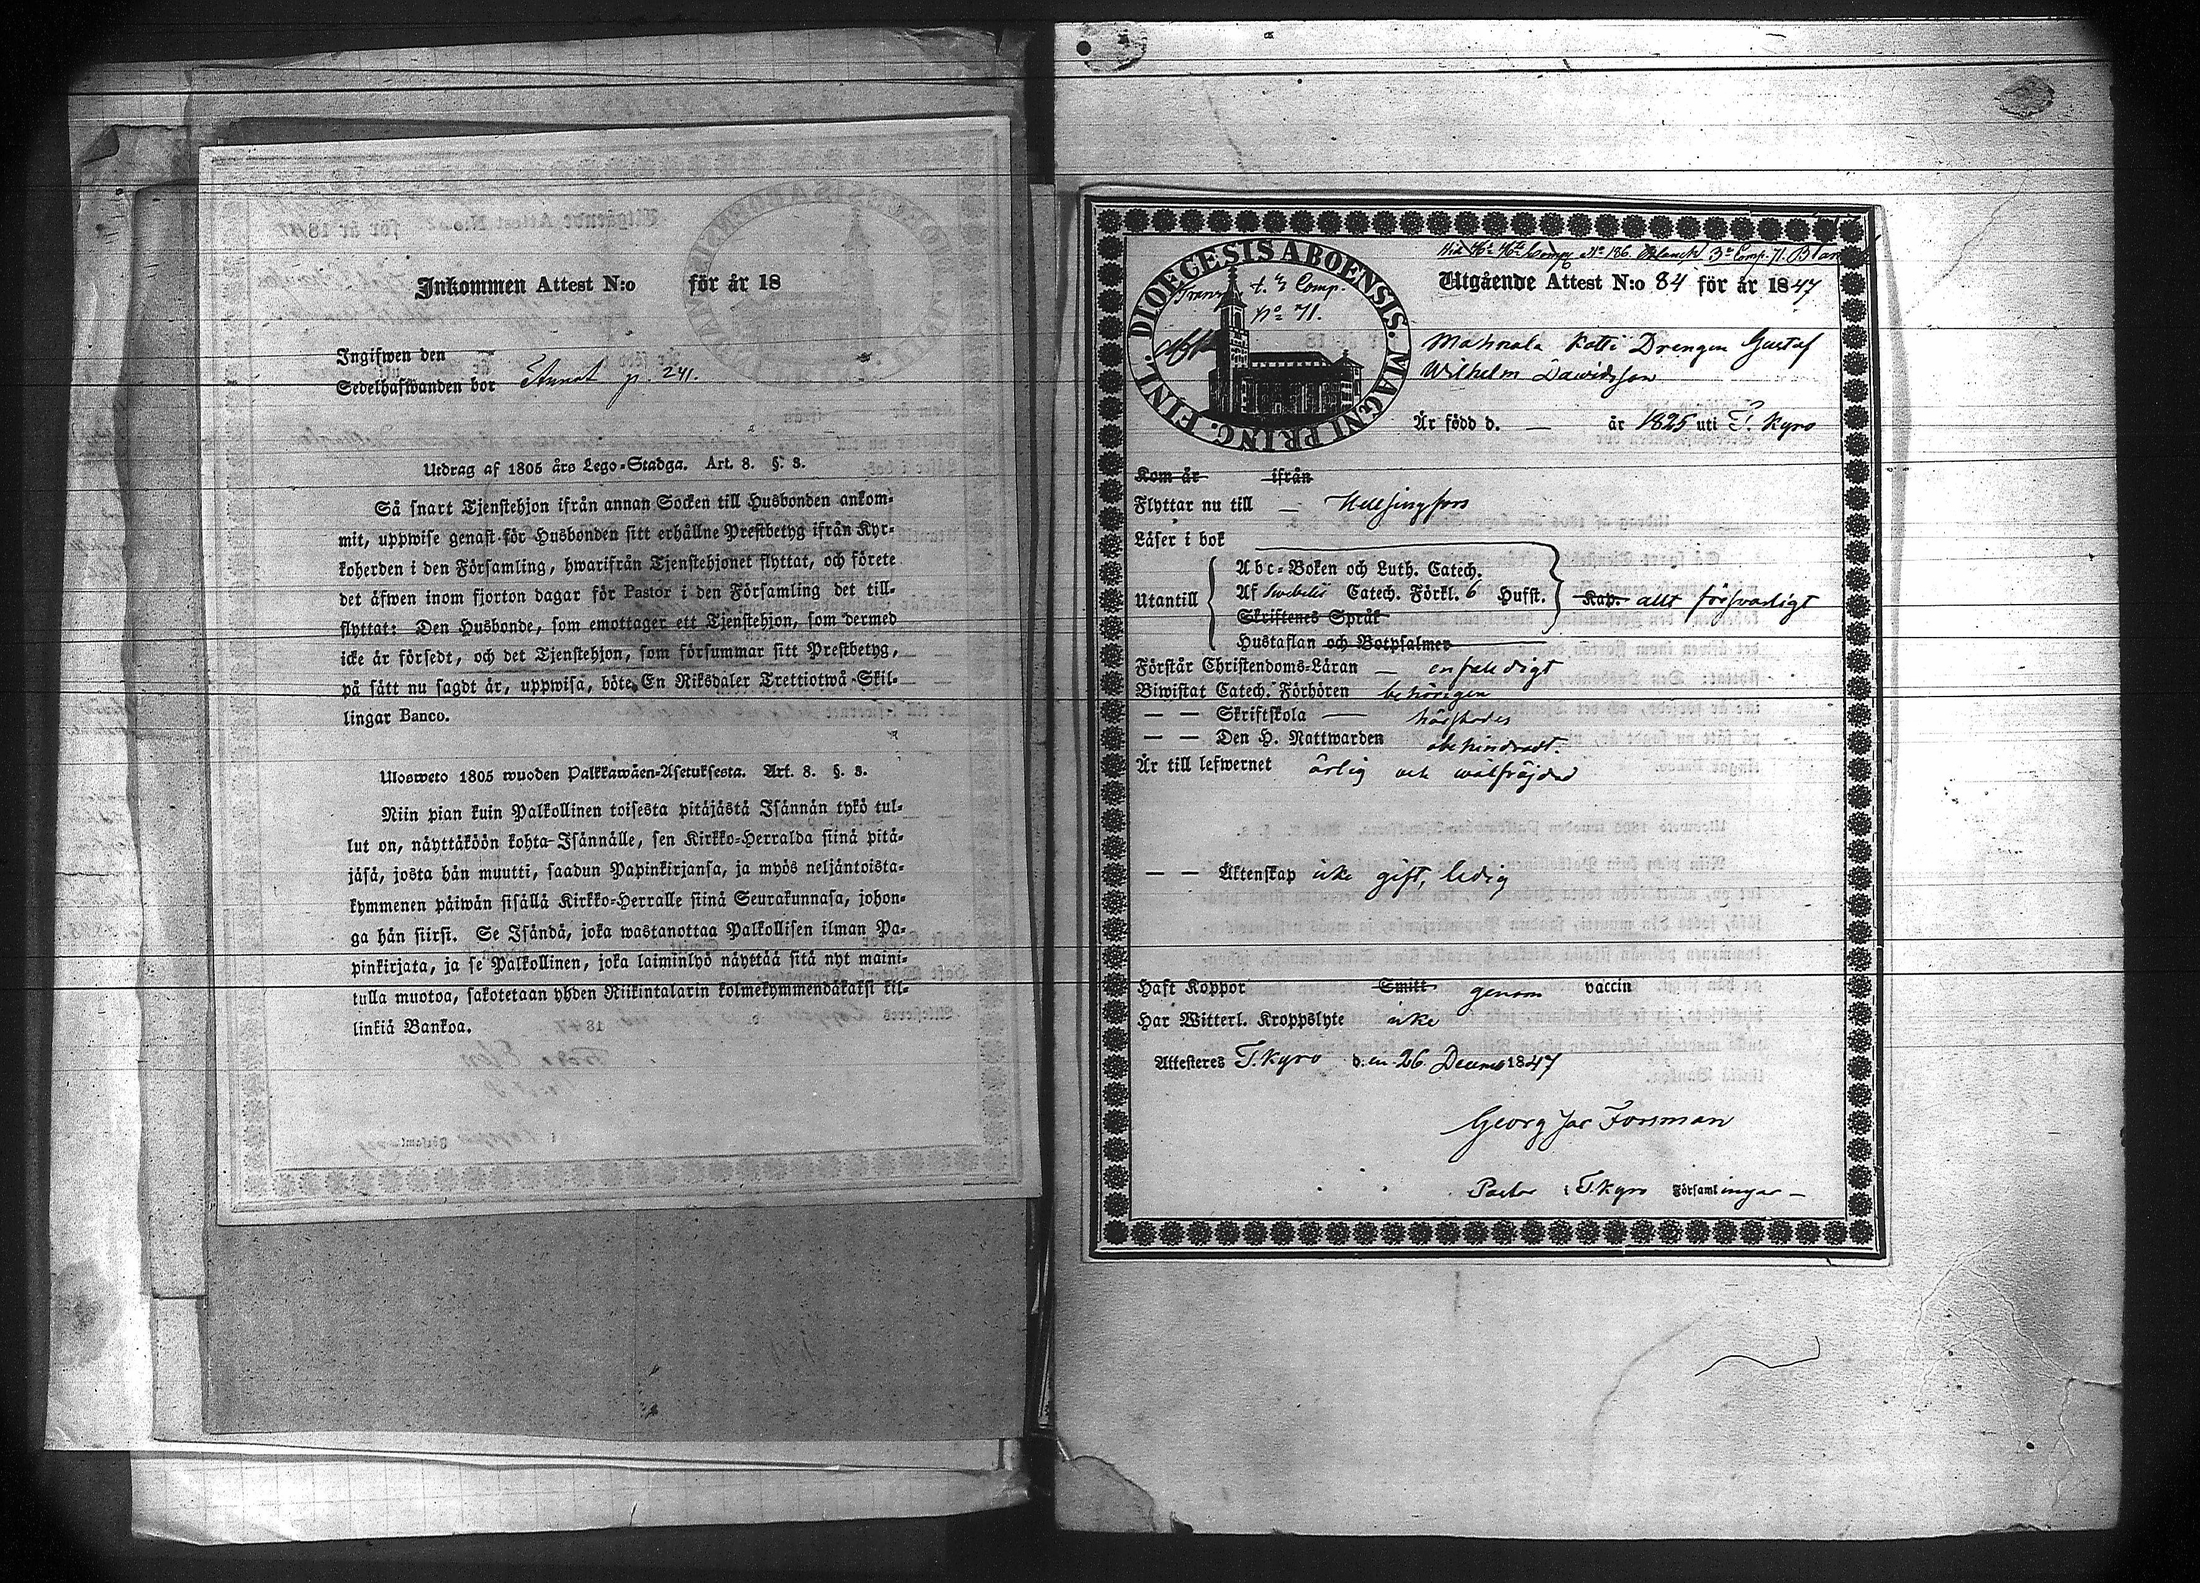 Inkommen Attest N:o för år 18
Ingifwen den
Sedelhafwanden bor Annat p. 241.
Utdrag af 1805 års Lego-Stadga. Art. 8. §. 3.
Så snart Tjenstehjon ifrån annan Socken till Husbonden ankom-
mit, uppwise genast för Husbonden sitt erhållne Prestbetyg ifrån Kyr-
koherden i den Församling, hwarifrån Tjenstehjonet flyttat, och förete
det äfwen inom fjorton dagar för Pastor i den Församling det till-
flyttat: Den Husbonde, som emottager ett Tjenstehjon, som dermed
icke är försedt, och det Tjenstehjon, som försummar sitt Prestbetyg,
på sätt nu sagdt är, uppwisa, böte En Riksdaler Trettiotwå Skil-
lingar Banco.
Ulosweto 1805 wuoden Palkkawäen-Asetuksesta. Art. 8. §. 3.
Niin pian kuin Palkollinen toisesta pitäjästä Isännän tykö tul-
lut on, näyttäköön kohta Isännälle, sen Kirkko-Herralda siinä pitä-
jäsä, josta hän muutti, saadun Papinkirjansa, ja myös neljäntoista-
kymmenen päiwän sisällä Kirkko-Herralle siinä Seurakunnasa, johon-
ga hän siirsi. Se Isändä, joka wastanottaa Palkollisen ilman Pa-
pinkirjata, ja se Palkollinen, joka laiminlyö näyttää sitä nyt maini-
tulla muotoa, sakotetaan yhden Riikintalarin kolmekymmendäkaksi kil-
linkiä Bankoa.
No 186 3e Comp. 71.
DIOECESIS ABOENSIS. MAGNI PRINC. FINL.
t. 3 Comp.
No 71.
Utgående Attest N:o 84 för år 1847
Mahnala Kotti Drengen Gustaf
Wilhelm Dawidsson
Är född d. — år 1825 uti T. Kyro
Kom år ifrån
Flyttar nu till — Helsingfors
Läser i bok
Utantill
Abc-Boken och Luth. Catech.
Af Swebelii Catech. Förkl. 6 Hufst. Kap. allt försvarligt
Skriftenes Språk
Hustaflan och Botpsalmer
Förstår Christendoms-Läran — enfaldigt
Biwistat Catech. Förhören behörigen
— — Skriftskola —
— — Den H. Nattwarden obehindradt.
Är till lefwernet ärlig och wälfräjdad
— — Äktenskap icke gift, ledig
Haft Koppor Smitt genom vaccin
Har Witterl. Kroppslyte icke
Attesteres T. Kyro d. en 26. Decemb 1847
Georg Jac Forsman
Pastor i T. Kyro Församlingar —